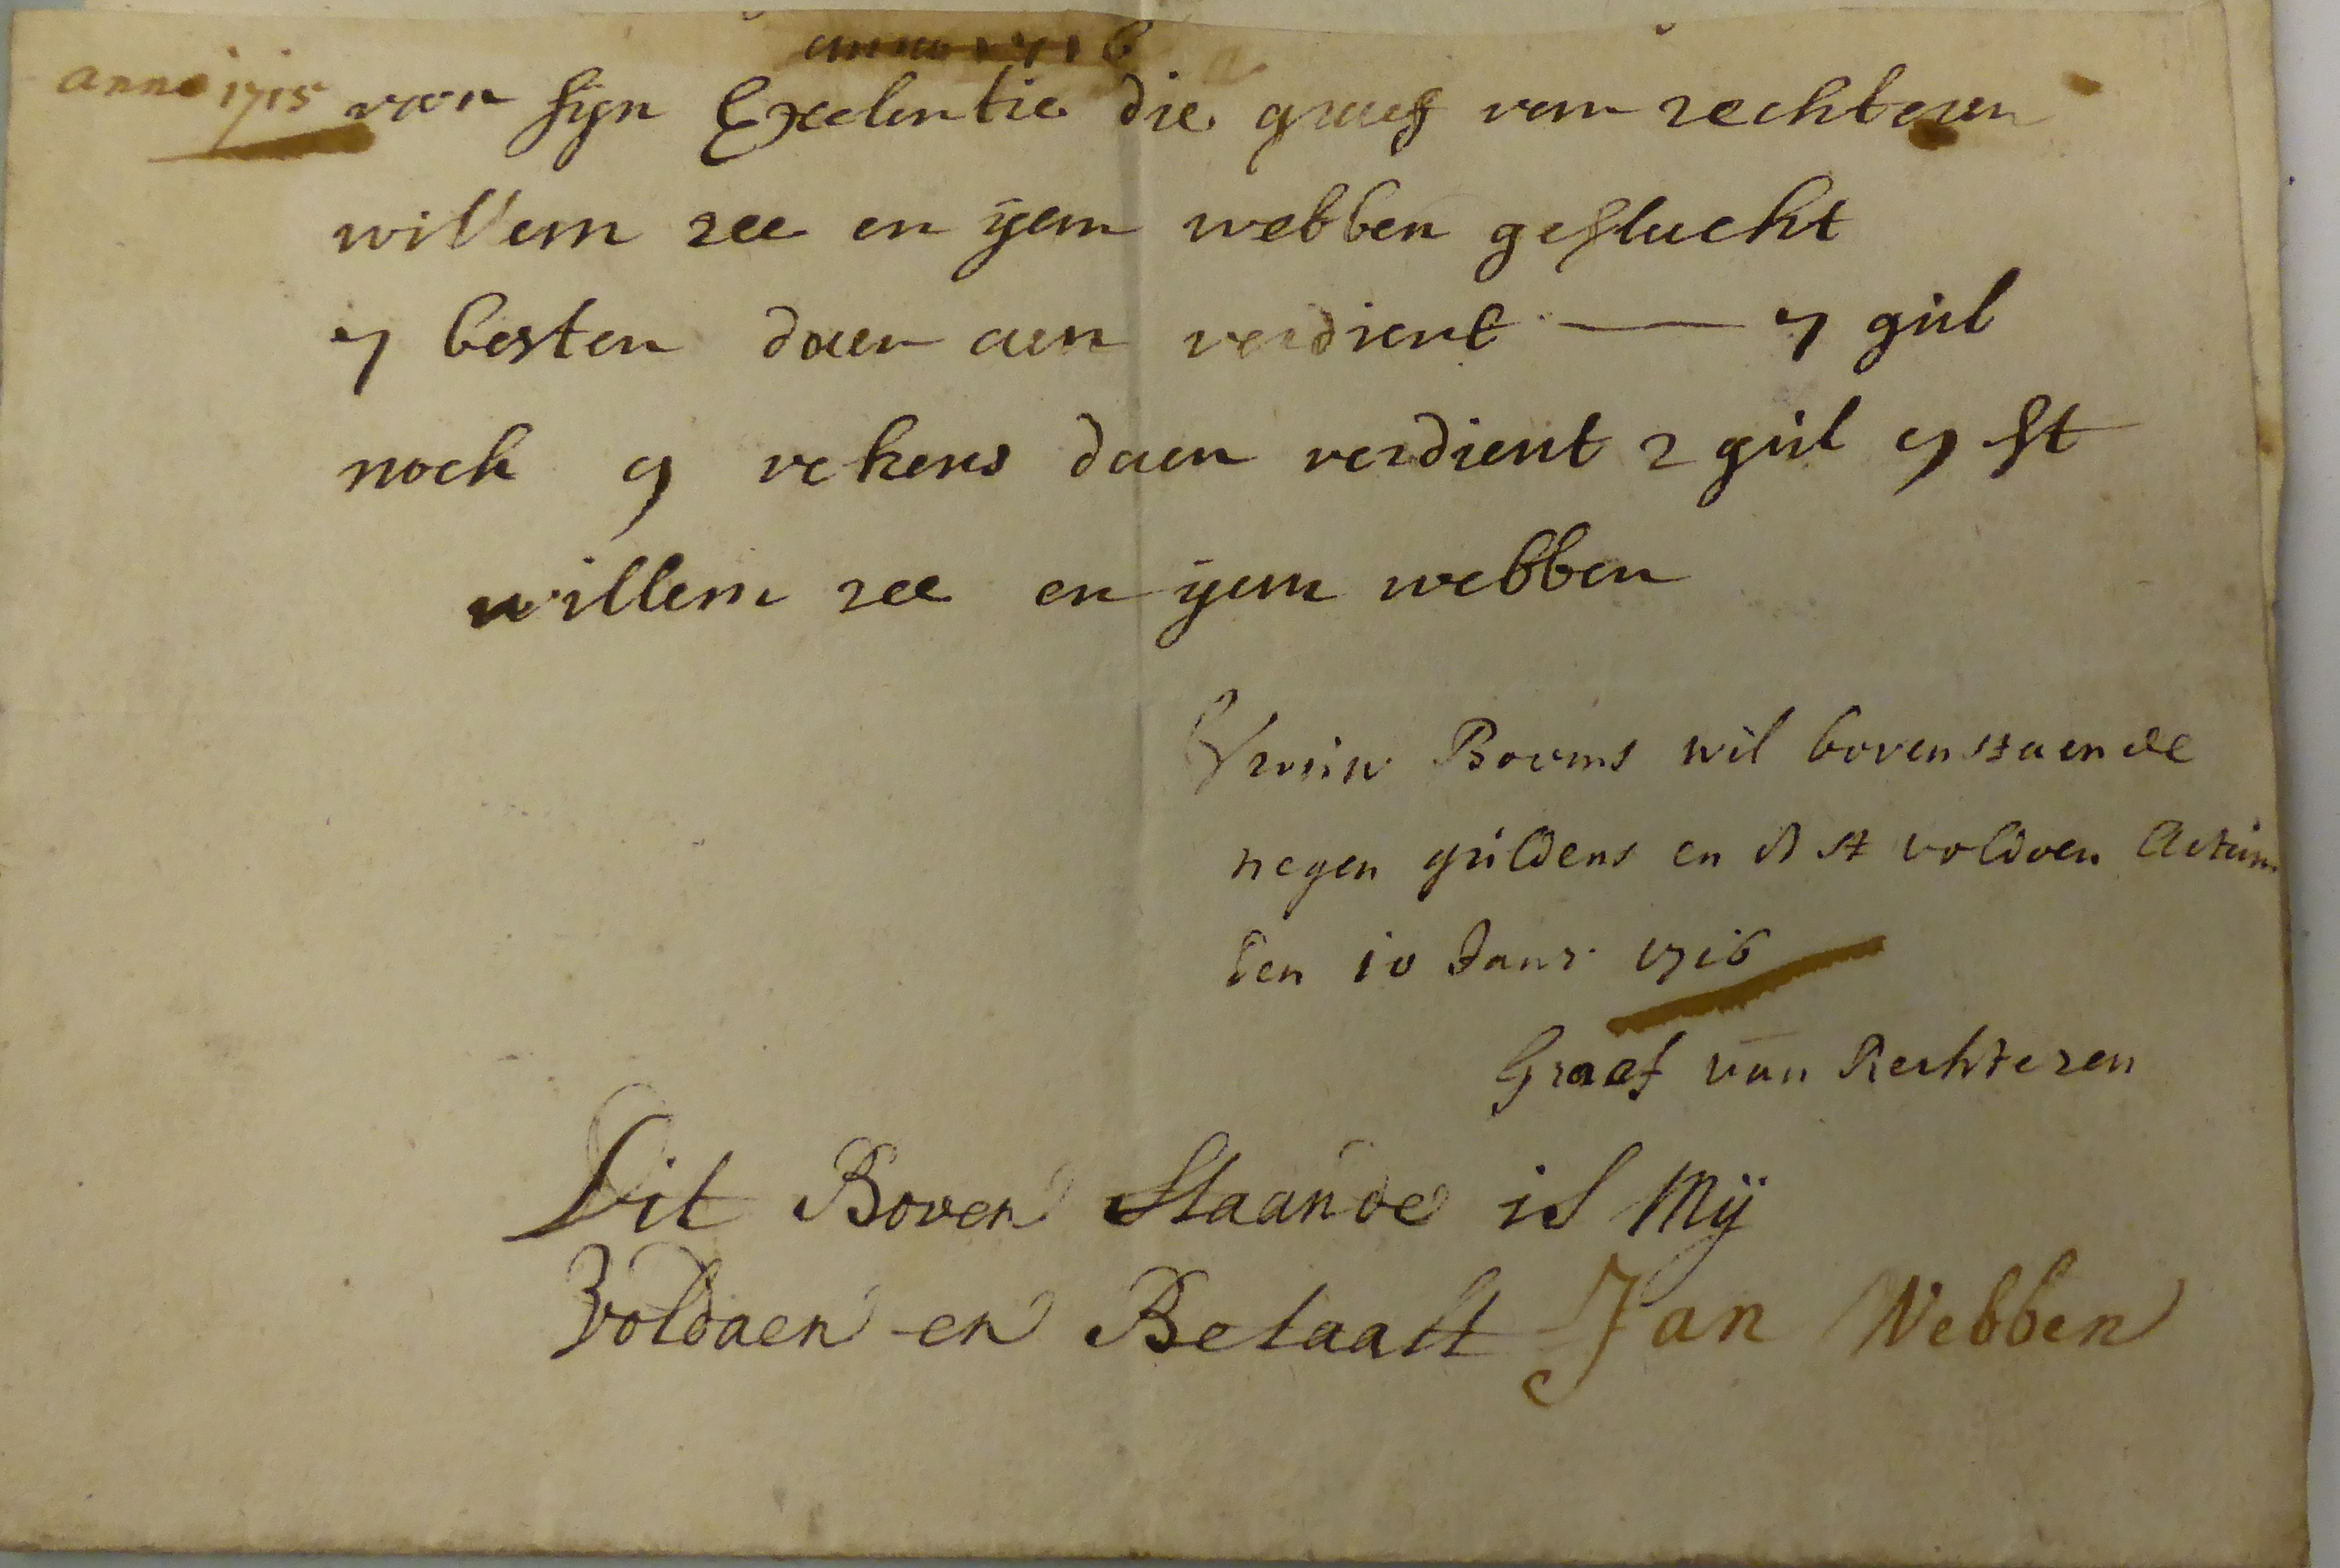 anno 1716
anno 1715 voor sijn Excelentie die graef van rechteren
willem ree en yan webben geslucht
7 besten daer aen verdient — 7 gul
noch 9 vekens daer verdient 2 gul 5 st
willem ree en yan webben
Vrouw Booms wil bovenstaende
negen guldens en 5 st voldoen Actum
den 10 Janr. 1716
Graef van Rechteren
Dit Boven Staande is Mij
Voldaen en Betaalt Jan Webben